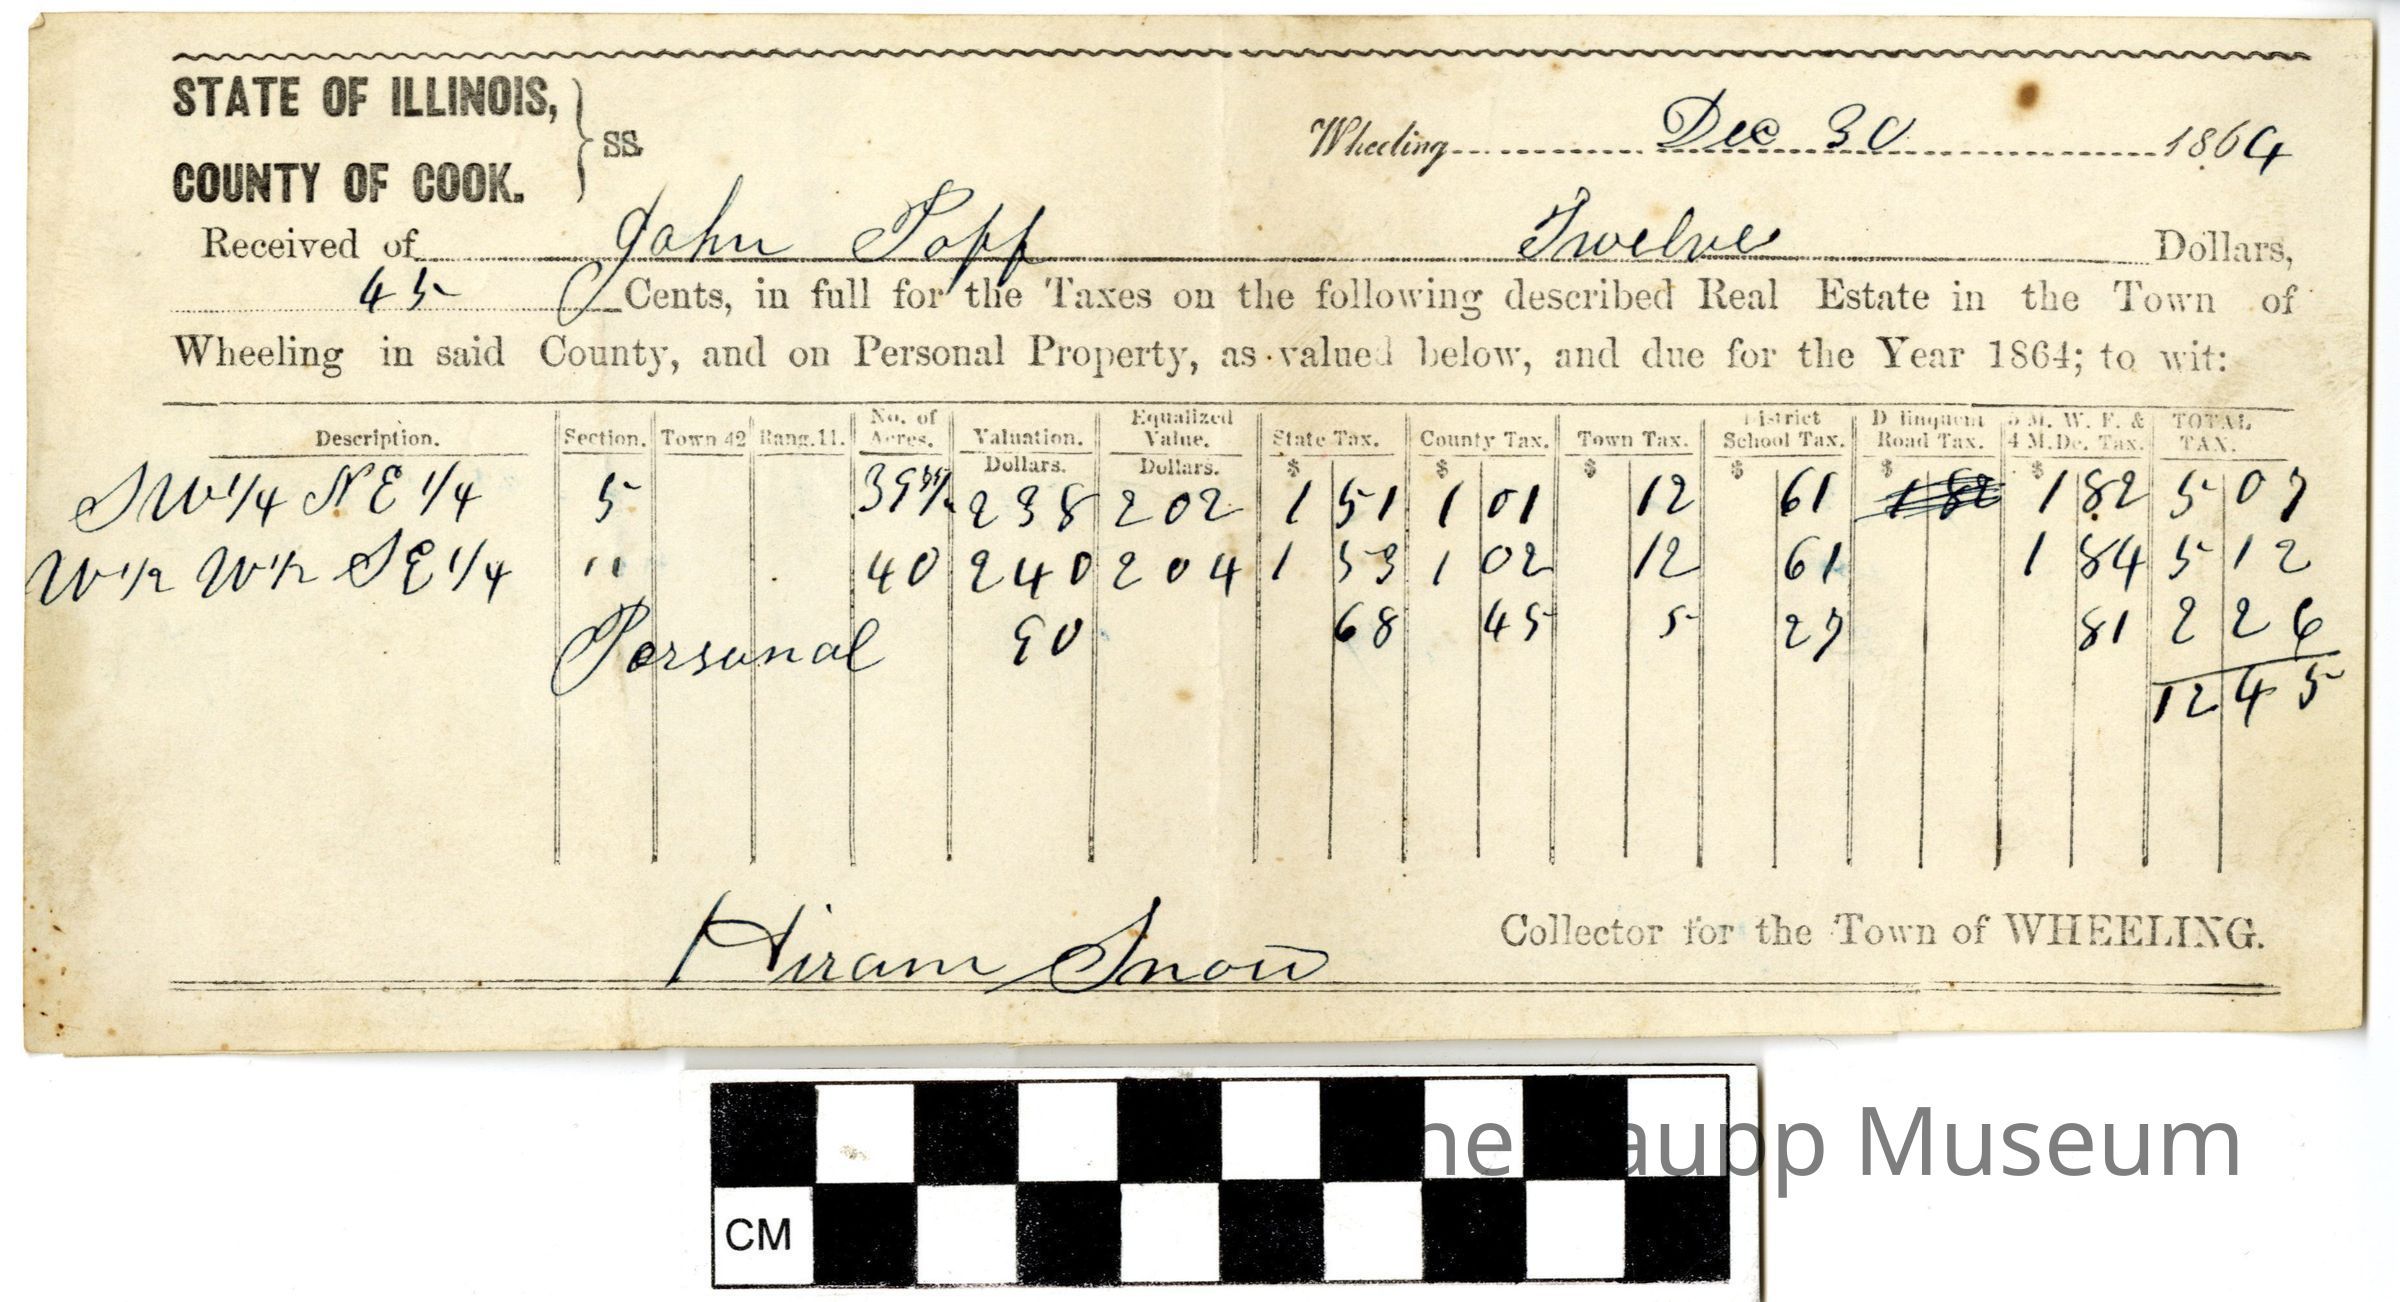 STATE OF ILLINOIS,
COUNTY OF COOK. } ss.
Wheeling Dec 30 1864
Received of John Popp Twelve Dollars,
45 Cents, in full for the Taxes on the following described Real Estate in the Town of
Wheeling in said County, and on Personal Property, as valued below, and due for the Year 1864; to wit:
Description. Section. Town 42 Rang. 11. No. of Acres. Valuation. Dollars. Equalized Value. Dollars. State Tax. $ County Tax. $ Town Tax. $ District School Tax. $ Delinquent Road Tax. $ 5 M. W. F. & 4 M. De. Tax. $ TOTAL TAX.
SW 1/4 NE 1/4 5 39 238 202 1 51 1 01 12 61 1 82 1 82 5 07
W 1/2 W 1/2 SE 1/4 " 40 240 204 1 53 1 02 12 61 1 84 5 12
Personal 90 68 45 5 27 81 2 26
12 45
Hiram Snow Collector for the Town of WHEELING.
CM
Museum